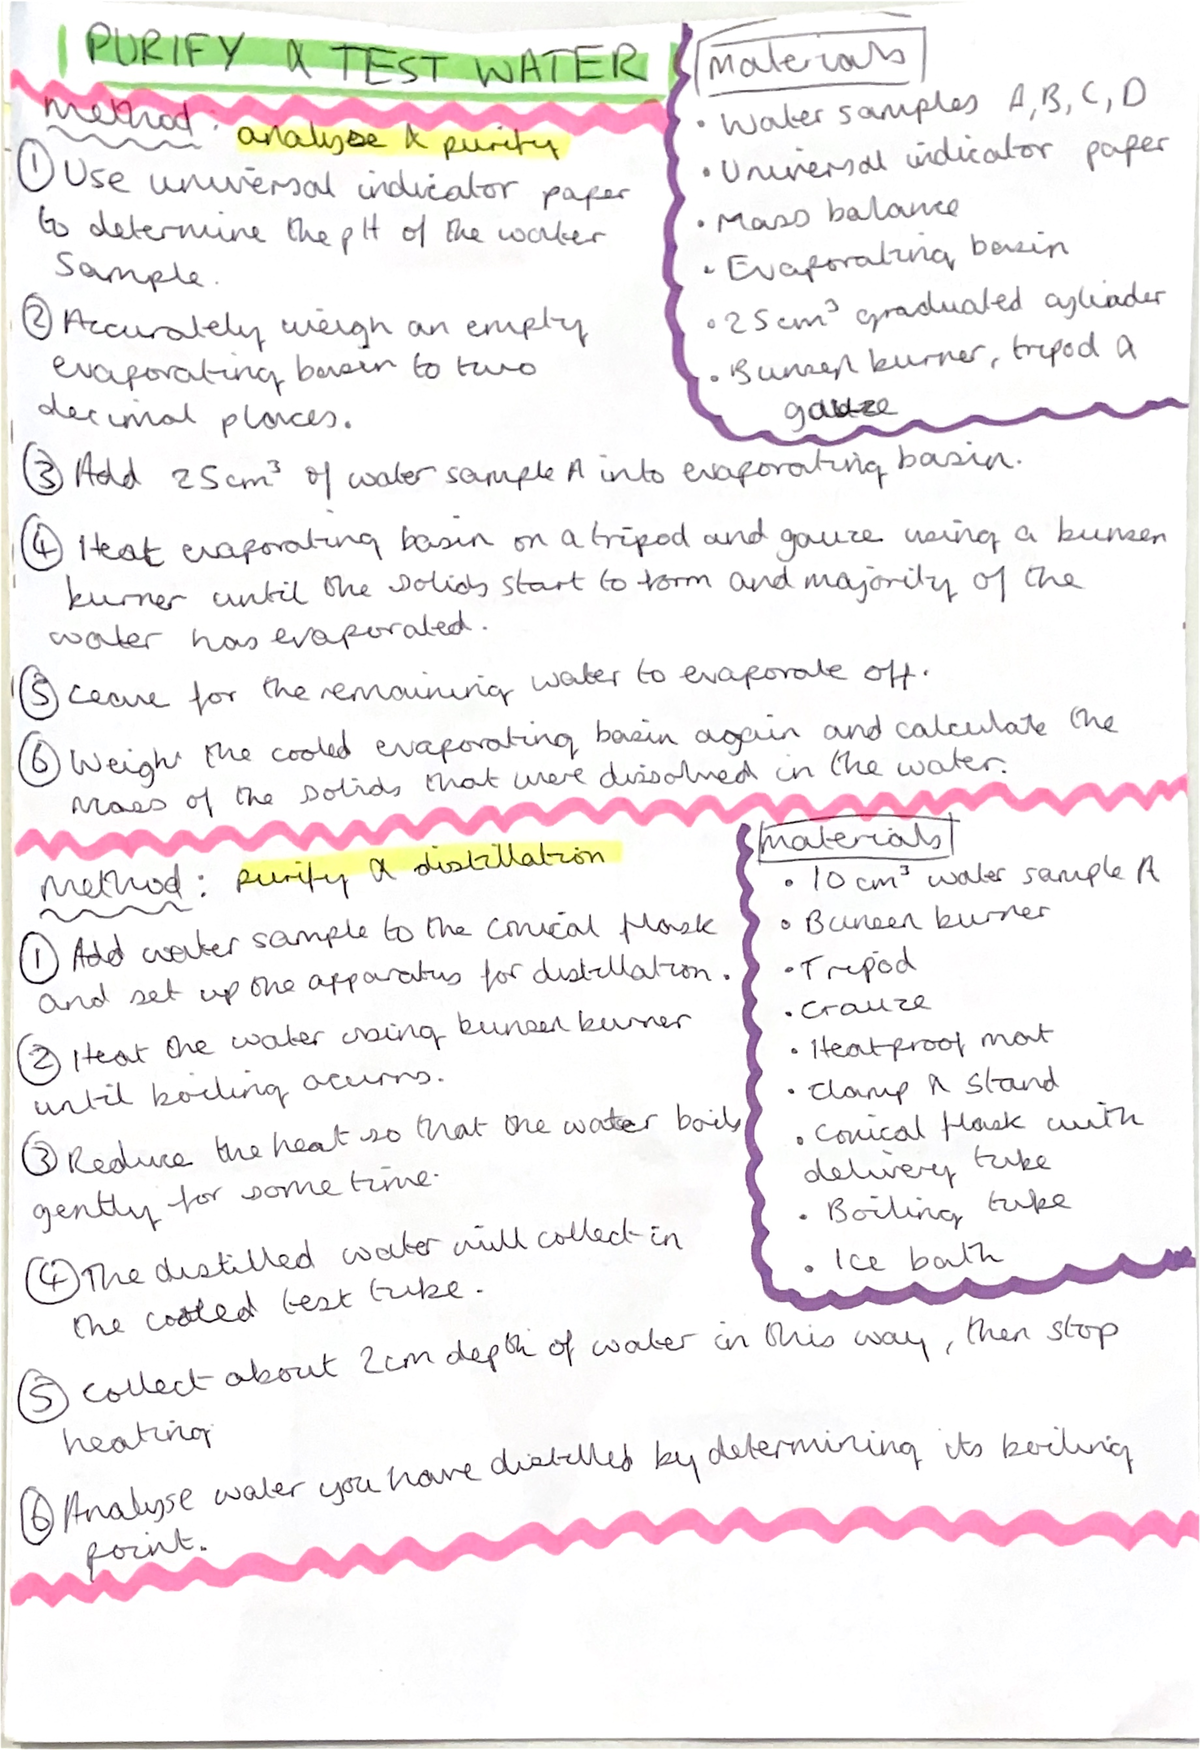 PURIFY & TEST WATER
Method: analyse & purify
① Use universal indicator paper
to determine the pH of the water
Sample.
② Accurately weigh an empty
evaporating basin to two
decimal places.
Materials
• Water samples A, B, C, D
• Universal indicator paper
• Mass balance
• Evaporating basin
• 25cm³ graduated cylinder
• Bunsen burner, tripod &
gauze
③ Add 25cm³ of water sample A into evaporating basin.
④ Heat evaporating basin on a tripod and gauze using a bunsen
burner until the solids start to form and majority of the
water has evaporated.
⑤ Leave for the remaining water to evaporate off.
⑥ Weight the cooled evaporating basin again and calculate the
mass of the solids that were dissolved in the water.
Method: purify & distillation
① Add water sample to the conical flask
and set up the apparatus for distillation.
② Heat the water using bunsen burner
until boiling ocurrs.
③ Reduce the heat so that the water boils
gently for some time.
④ The distilled water will collect in
the cooled test tube.
Materials
• 10cm³ water sample A
• Bunsen burner
• Tripod
• Gauze
• Heatproof mat
• Clamp & stand
• Conical flask with
delivery tube
• Boiling tube
• Ice bath
⑤ Collect about 2cm depth of water in this way, then stop
heating
⑥ Analyse water you have distilled by determining its boiling
point.